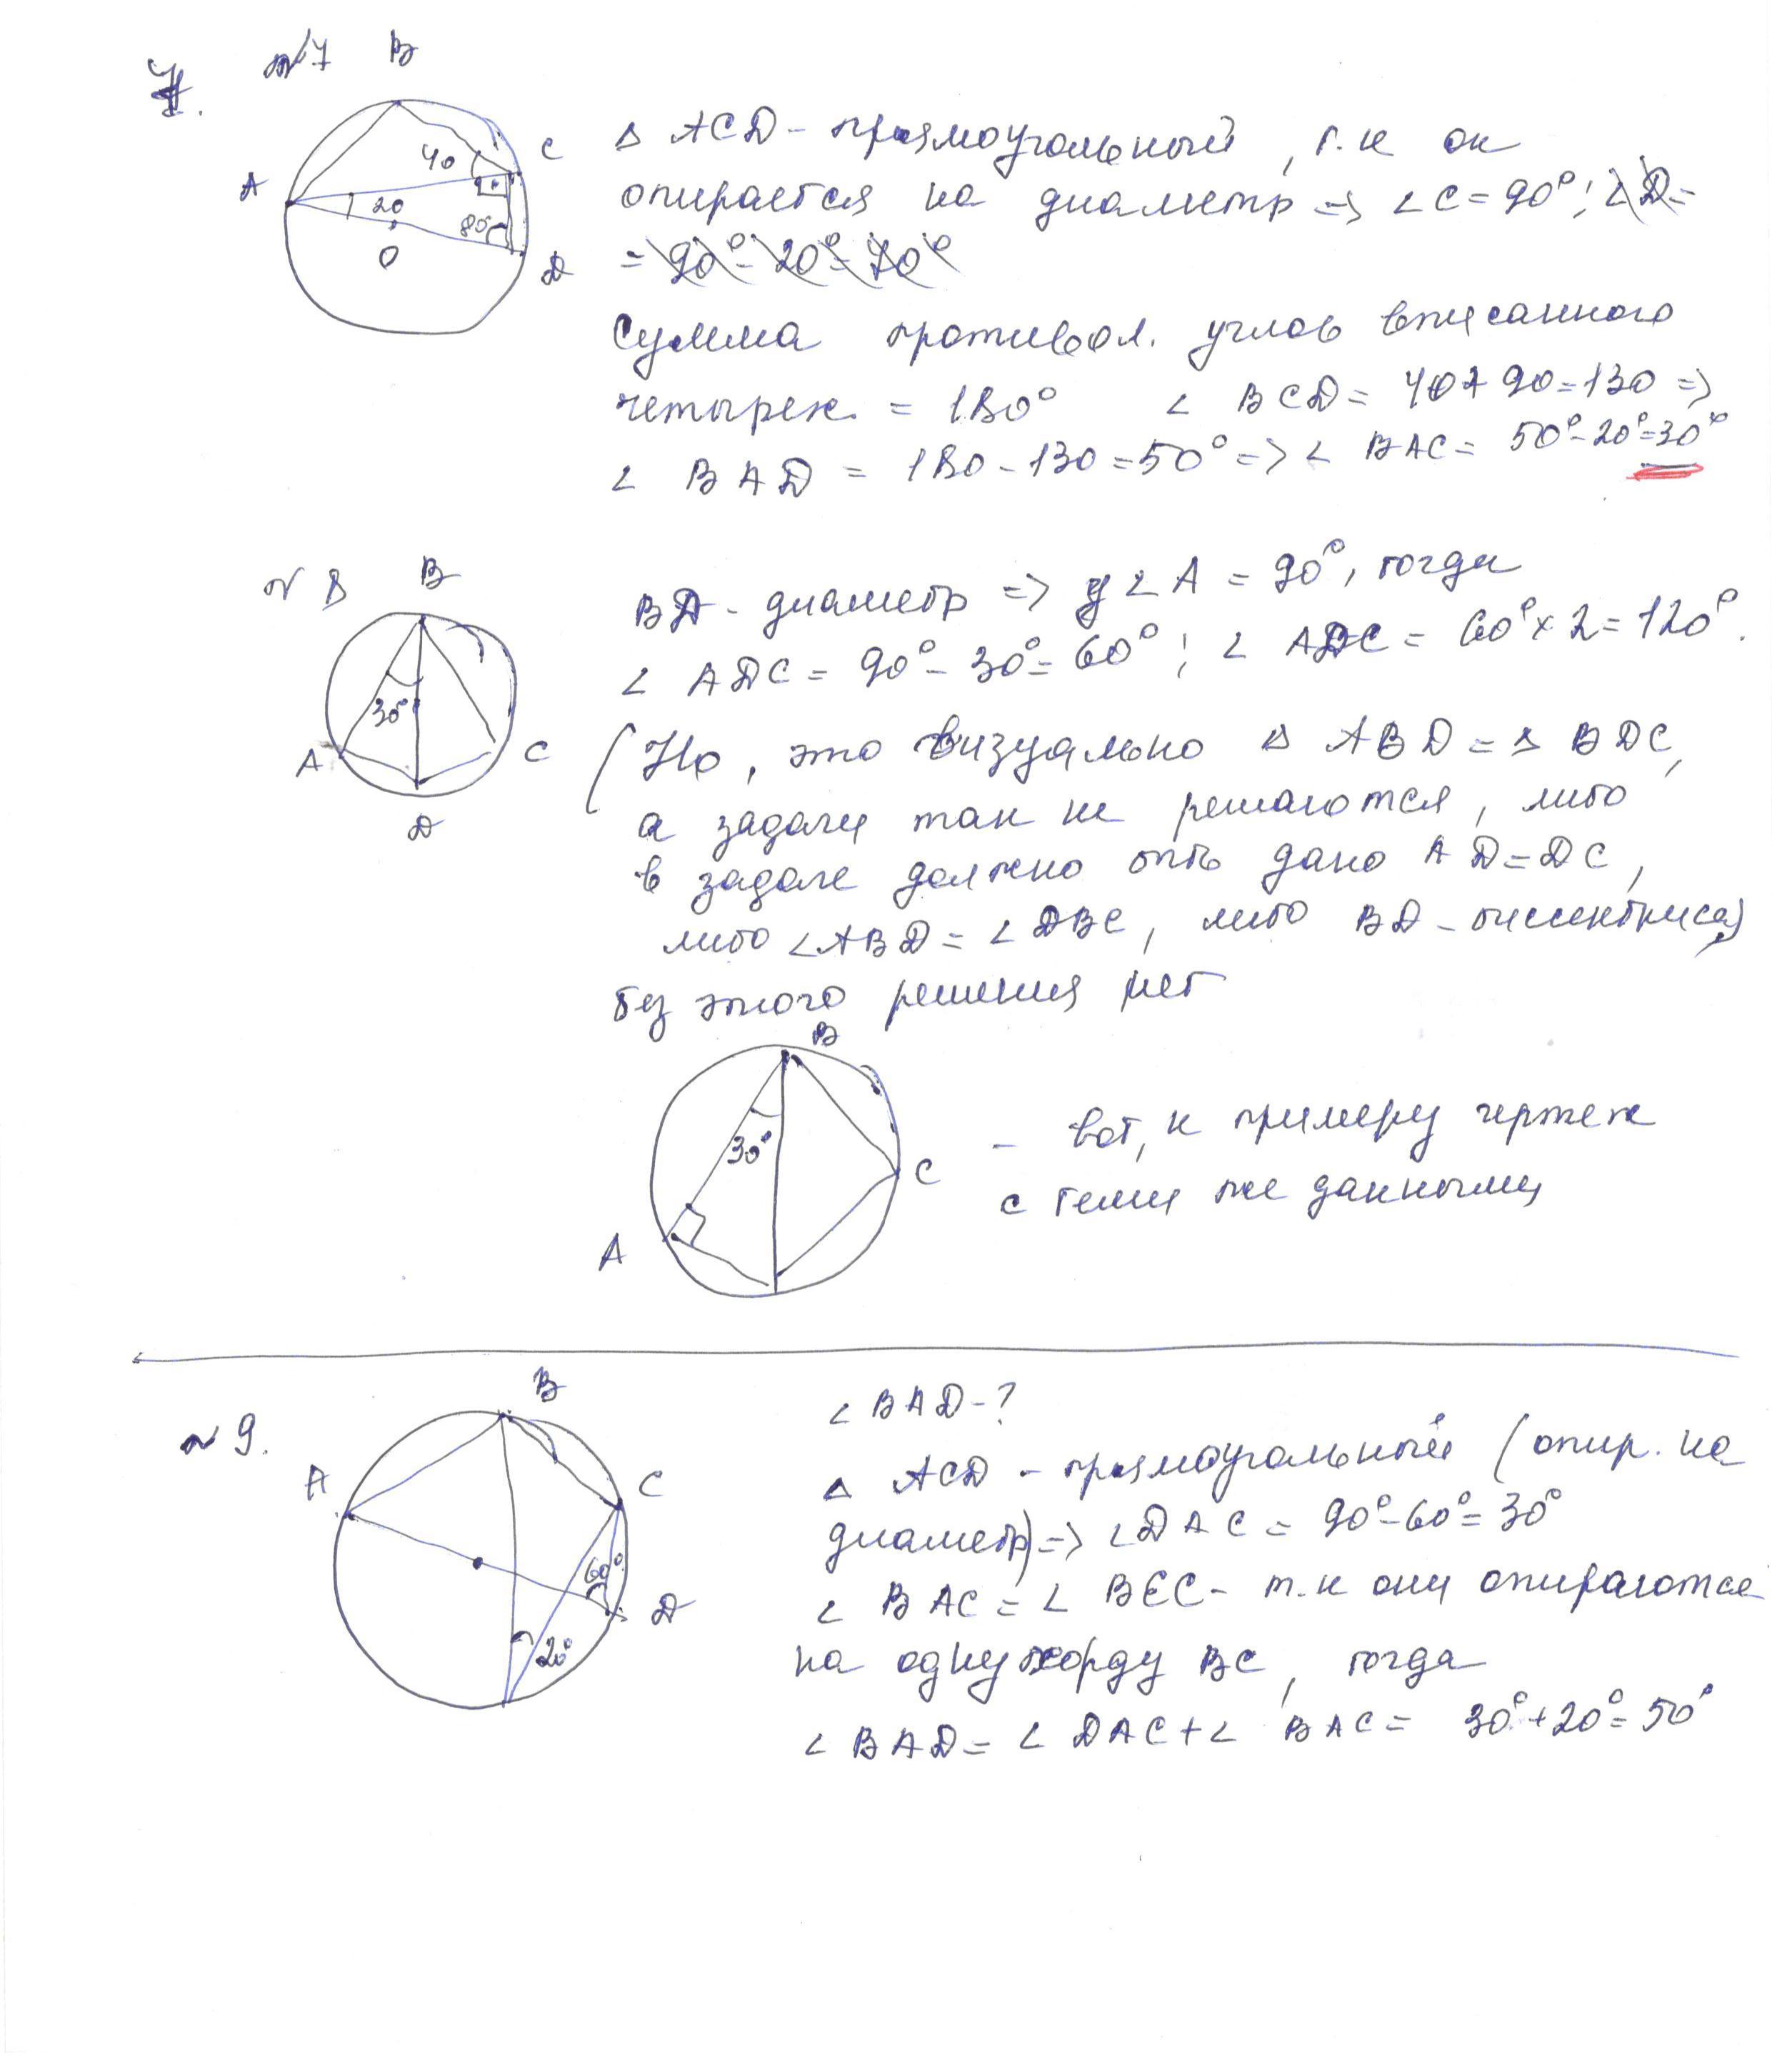 7. №7 B
A C 40 20 80 O D
Δ ACD - прямоугольный, т.к он
опирается на диаметр => ∠C = 90°; ∠D =
= 90° - 20° = 70°
Сумма противол. углов вписанного
четырех. = 180° ∠ BCD = 40 + 90 = 130 =>
∠ BAD = 180 - 130 = 50° => ∠ BAC = 50° - 20° = 30°
№ 8 B
30° A C D
BD - диаметр => ∠A = 90°, тогда
∠ ADC = 90° - 30° = 60°; ∠ ADC = 60° x 2 = 120°.
(Но, это визуально Δ ABD = Δ BDC,
а задачи так не решаются, либо
в задаче должно быть дано AD = DC,
либо ∠ABD = ∠DBC, либо BD - биссектриса)
без этого решения нет
B 30° C A
- вот, к примеру чертеж
с теми же данными
№ 9. B A C 60° D 20°
∠ BAD - ?
Δ ACD - прямоугольный (опир. на
диаметр) => ∠DAC = 90° - 60° = 30°
∠ BAC = ∠ BEC - т.к они опираются
на одну хорду BC, тогда
∠ BAD = ∠ DAC + ∠ BAC = 30° + 20° = 50°